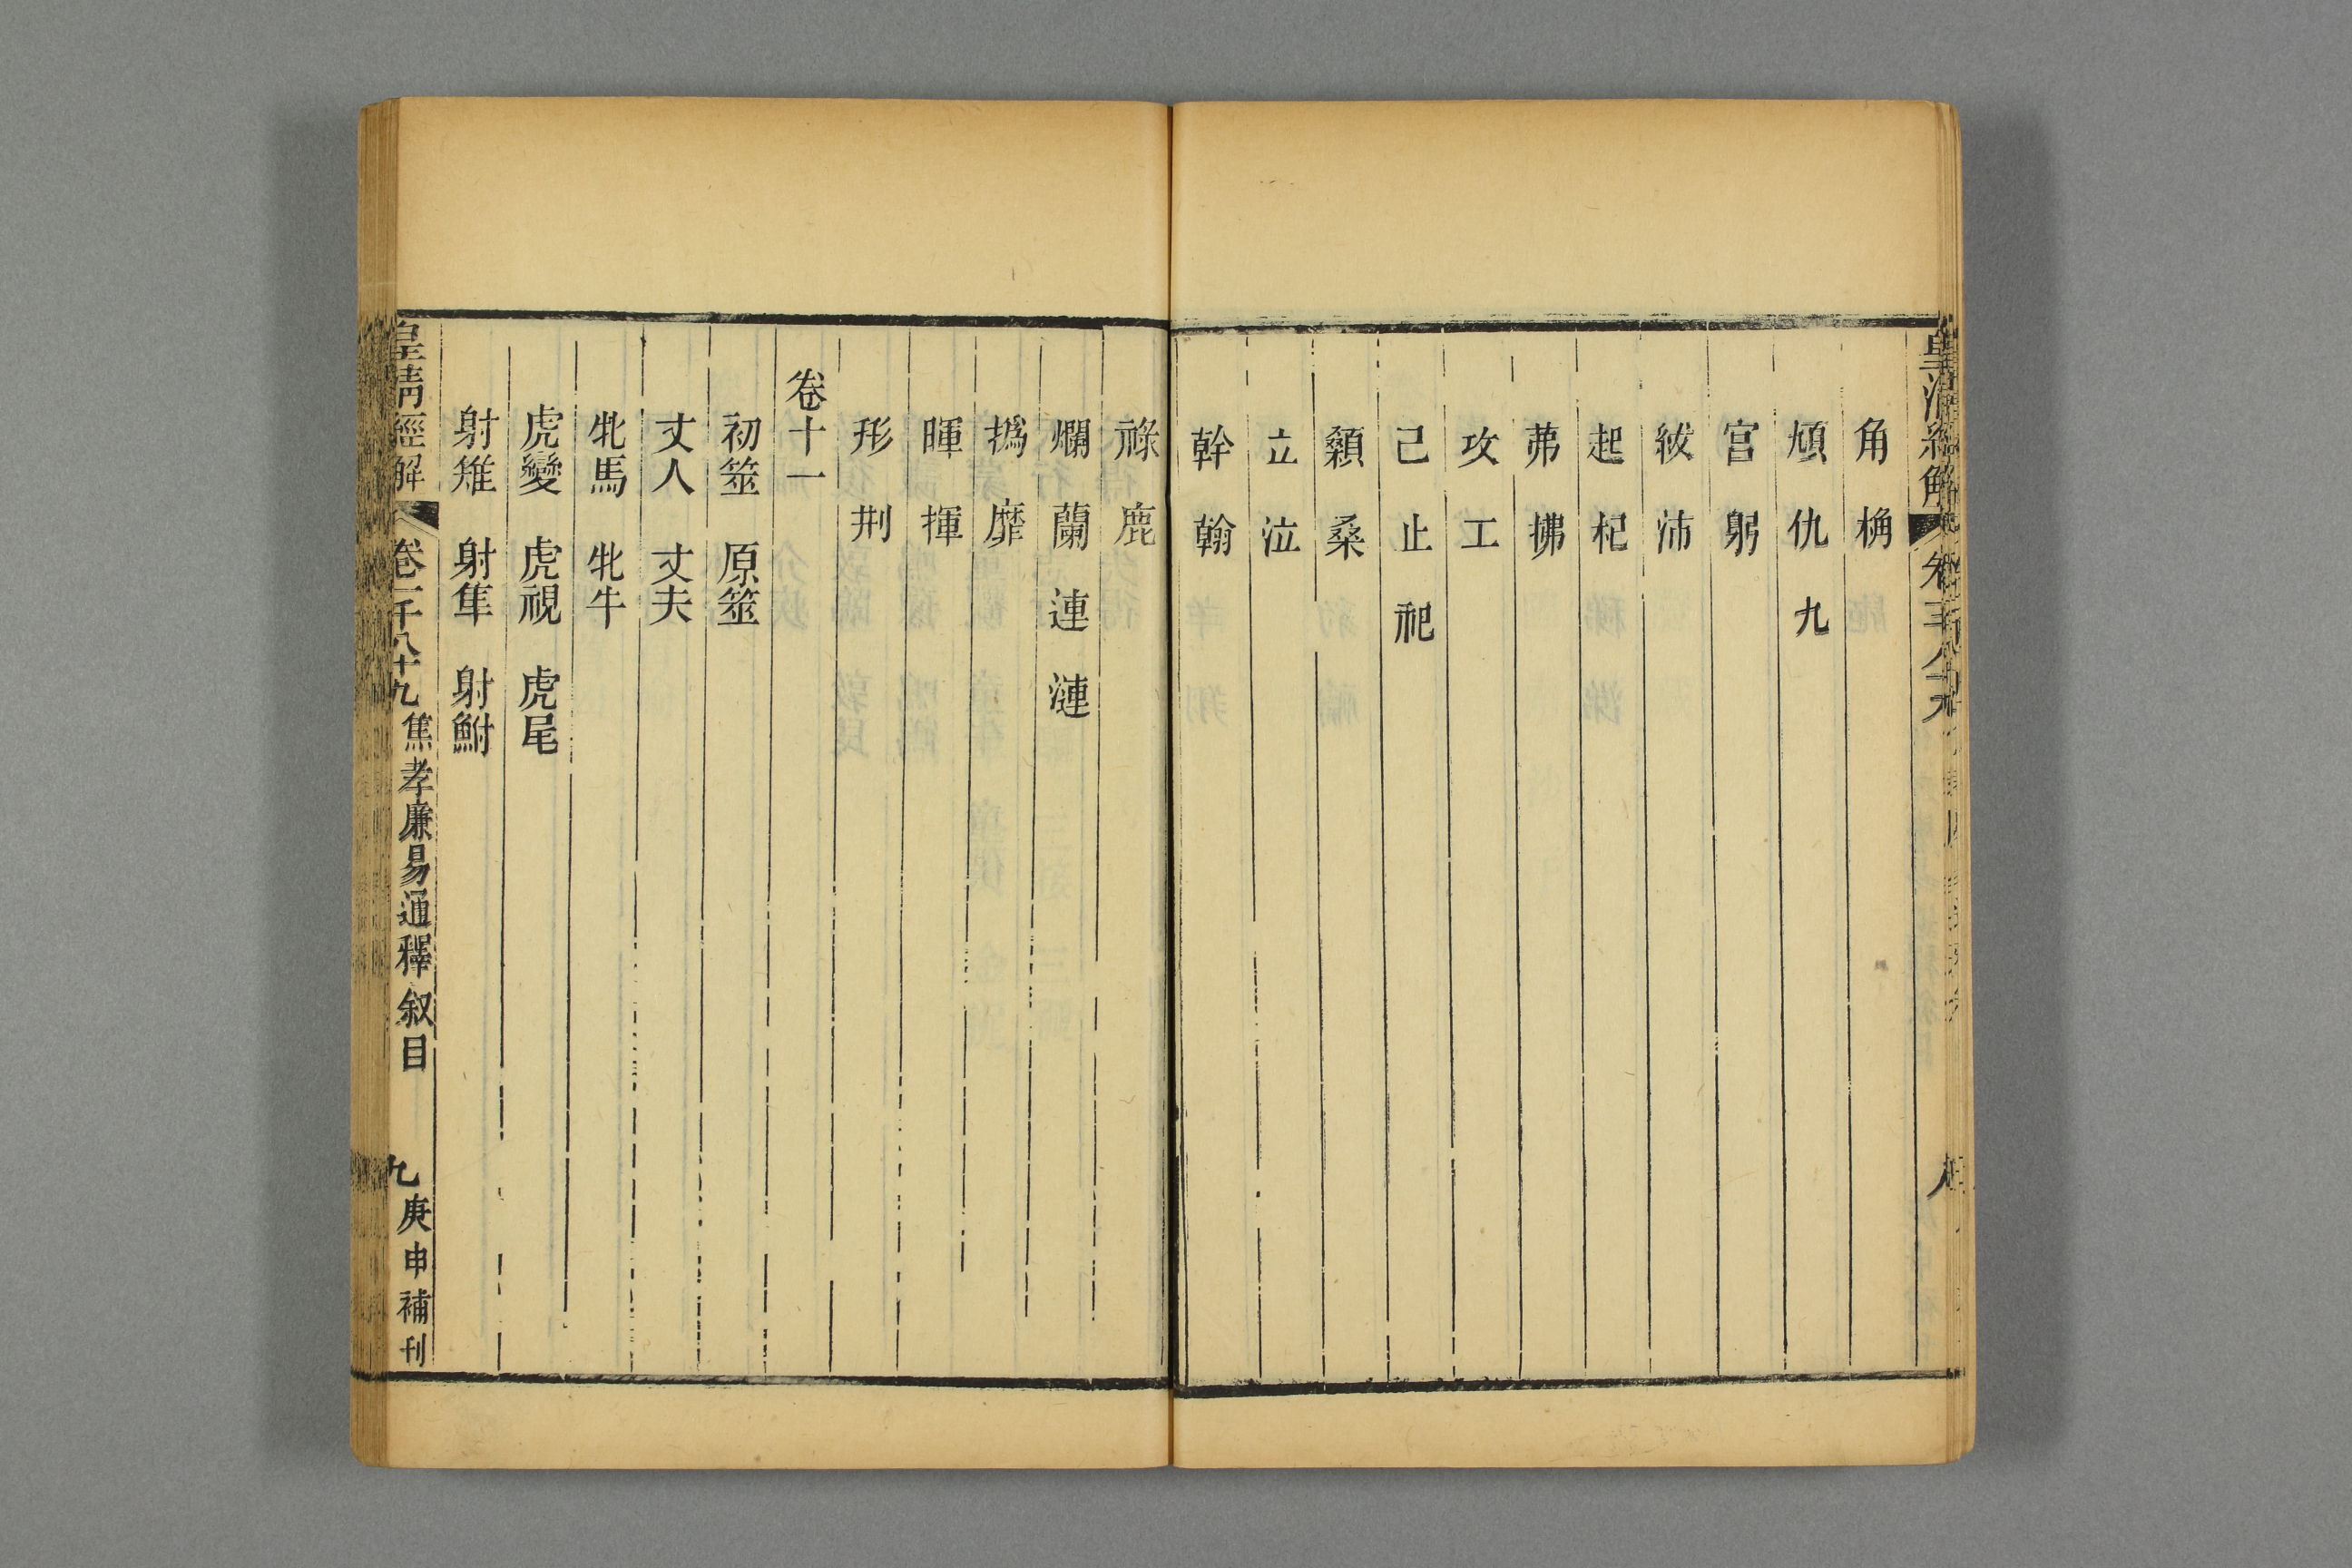 皇清經解
角 桷
頄 仇 九
宮 躬
紱 沛
起 杞
茀 拂
攻 工
己 止 祀
顙 桑
立 泣
幹 翰
祿 鹿
爛 蘭 連 漣
撝 靡
暉 揮
形 刑
卷十一
初筮 原筮
丈人 丈夫
牝馬 牝牛
虎變 虎視 虎尾
射雉 射隼 射鮒
皇清經解 卷一千八十九 焦孝廉易通釋叙目 九 庚申補刊